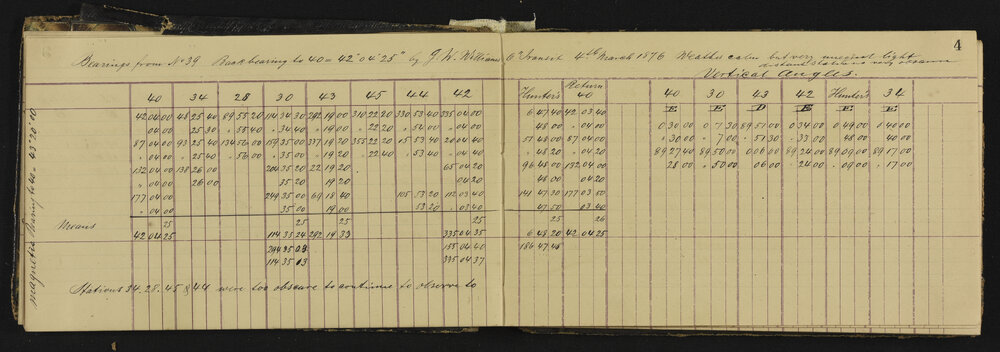 4
Bearings from No 39 Back bearing to 40 = 42° 04' 25" by J. W. Williams 6" Transit 4th March 1876 Weather calm but very unequal light
distant stations very obscure
Vertical Angles.
magnetic bearing to 40 = 43° 20' 00
40 34 28 30 43 45 44 42 Hunter's Return 40 40 30 43 42 Hunter's 34
E E D E E E
42 04 00 48 25 40 89 55 20 114 34 30 292 19 00 310 22 20 330 53 40 335 04 00 6 47 40 42 03 40 0 30 00 0 7 30 89 57 00 0 34 00 0 49 00 0 40 00
" 04 00 25 30 " 55 40 " 34 40 " 19 00 " 22 20 " 54 00 " 04 00 48 00 " 04 00 " 30 00 " 7 00 " 57 30 " 33 00 48 00 40 00
87 04 00 93 25 40 134 56 00 159 35 00 337 19 20 355 22 20 15 53 40 20 04 40 51 48 00 87 04 00 89 27 40 89 50 00 0 06 00 89 24 00 89 09 00 89 17 00
" 04 00 25 40 " 56 00 " 35 00 " 19 20 " 22 40 " 53 40 " 04 40 " 48 20 " 04 20 28 00 " 50 00 " 06 00 " 24 00 " 09 00 " 17 00
132 04 00 138 26 00 204 35 20 22 19 20 65 04 20 96 48 00 132 04 00
" 04 00 26 00 35 20 19 20 04 20 48 00 04 20
177 04 00 249 35 00 69 18 40 105 53 20 112 03 40 141 47 30 177 03 50
" 04 00 35 00 19 00 53 20 " 03 40 47 50 03 40
25 25 25 25 25 26
Means 42 04 25 114 35 24 292 19 33 335 04 35 6 48 20 42 04 25
294 35 03 155 04 40 186 47 45
114 35 13 335 04 37
Stations 34. 28. 45 & 44 were too obscure to continue to observe to